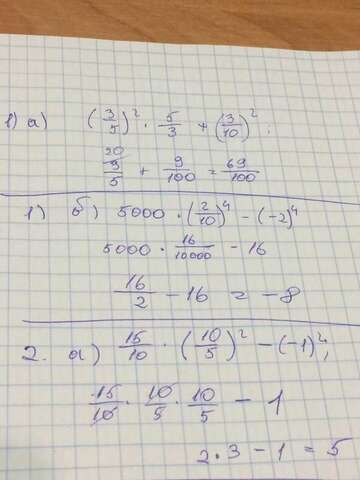 1) а) (3/5)² · 5/3 + (3/10)²;
20
3/5 + 9/100 = 69/100
1) б) 5000 · (2/10)⁴ − (−2)⁴
5000 · 16/10000 − 16
16/2 − 16 = −8
2. а) 15/10 · (10/5)² − (−1)⁴;
15/10 · 10/5 · 10/5 − 1
2 · 3 − 1 = 5